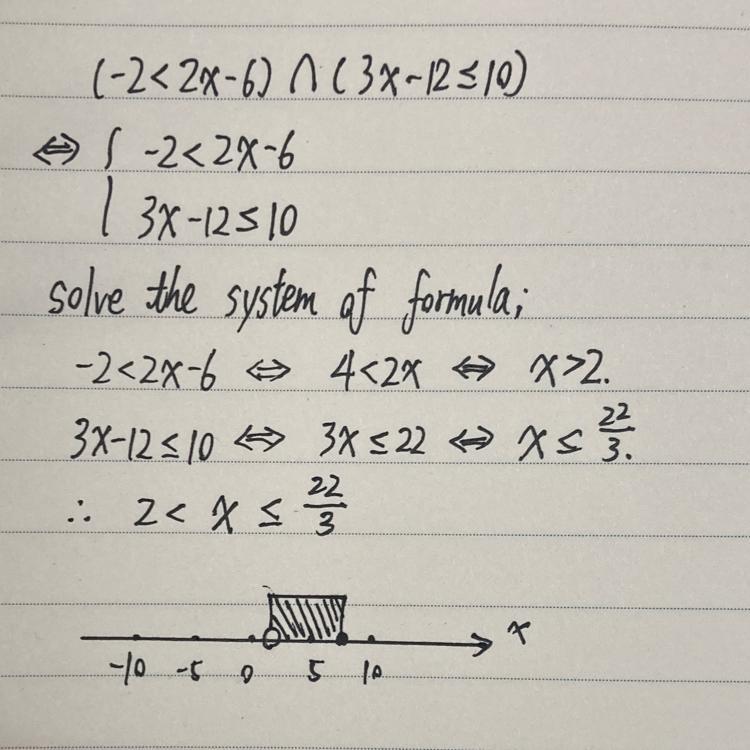 (-2<2x-6) ∩ (3x-12≤10)
⇔ { -2<2x-6
3x-12≤10
solve the system of formula;
-2<2x-6 ⇔ 4<2x ⇔ x>2.
3x-12≤10 ⇔ 3x≤22 ⇔ x≤22/3.
∴ 2< x ≤ 22/3
x
-10 -5 0 5 10